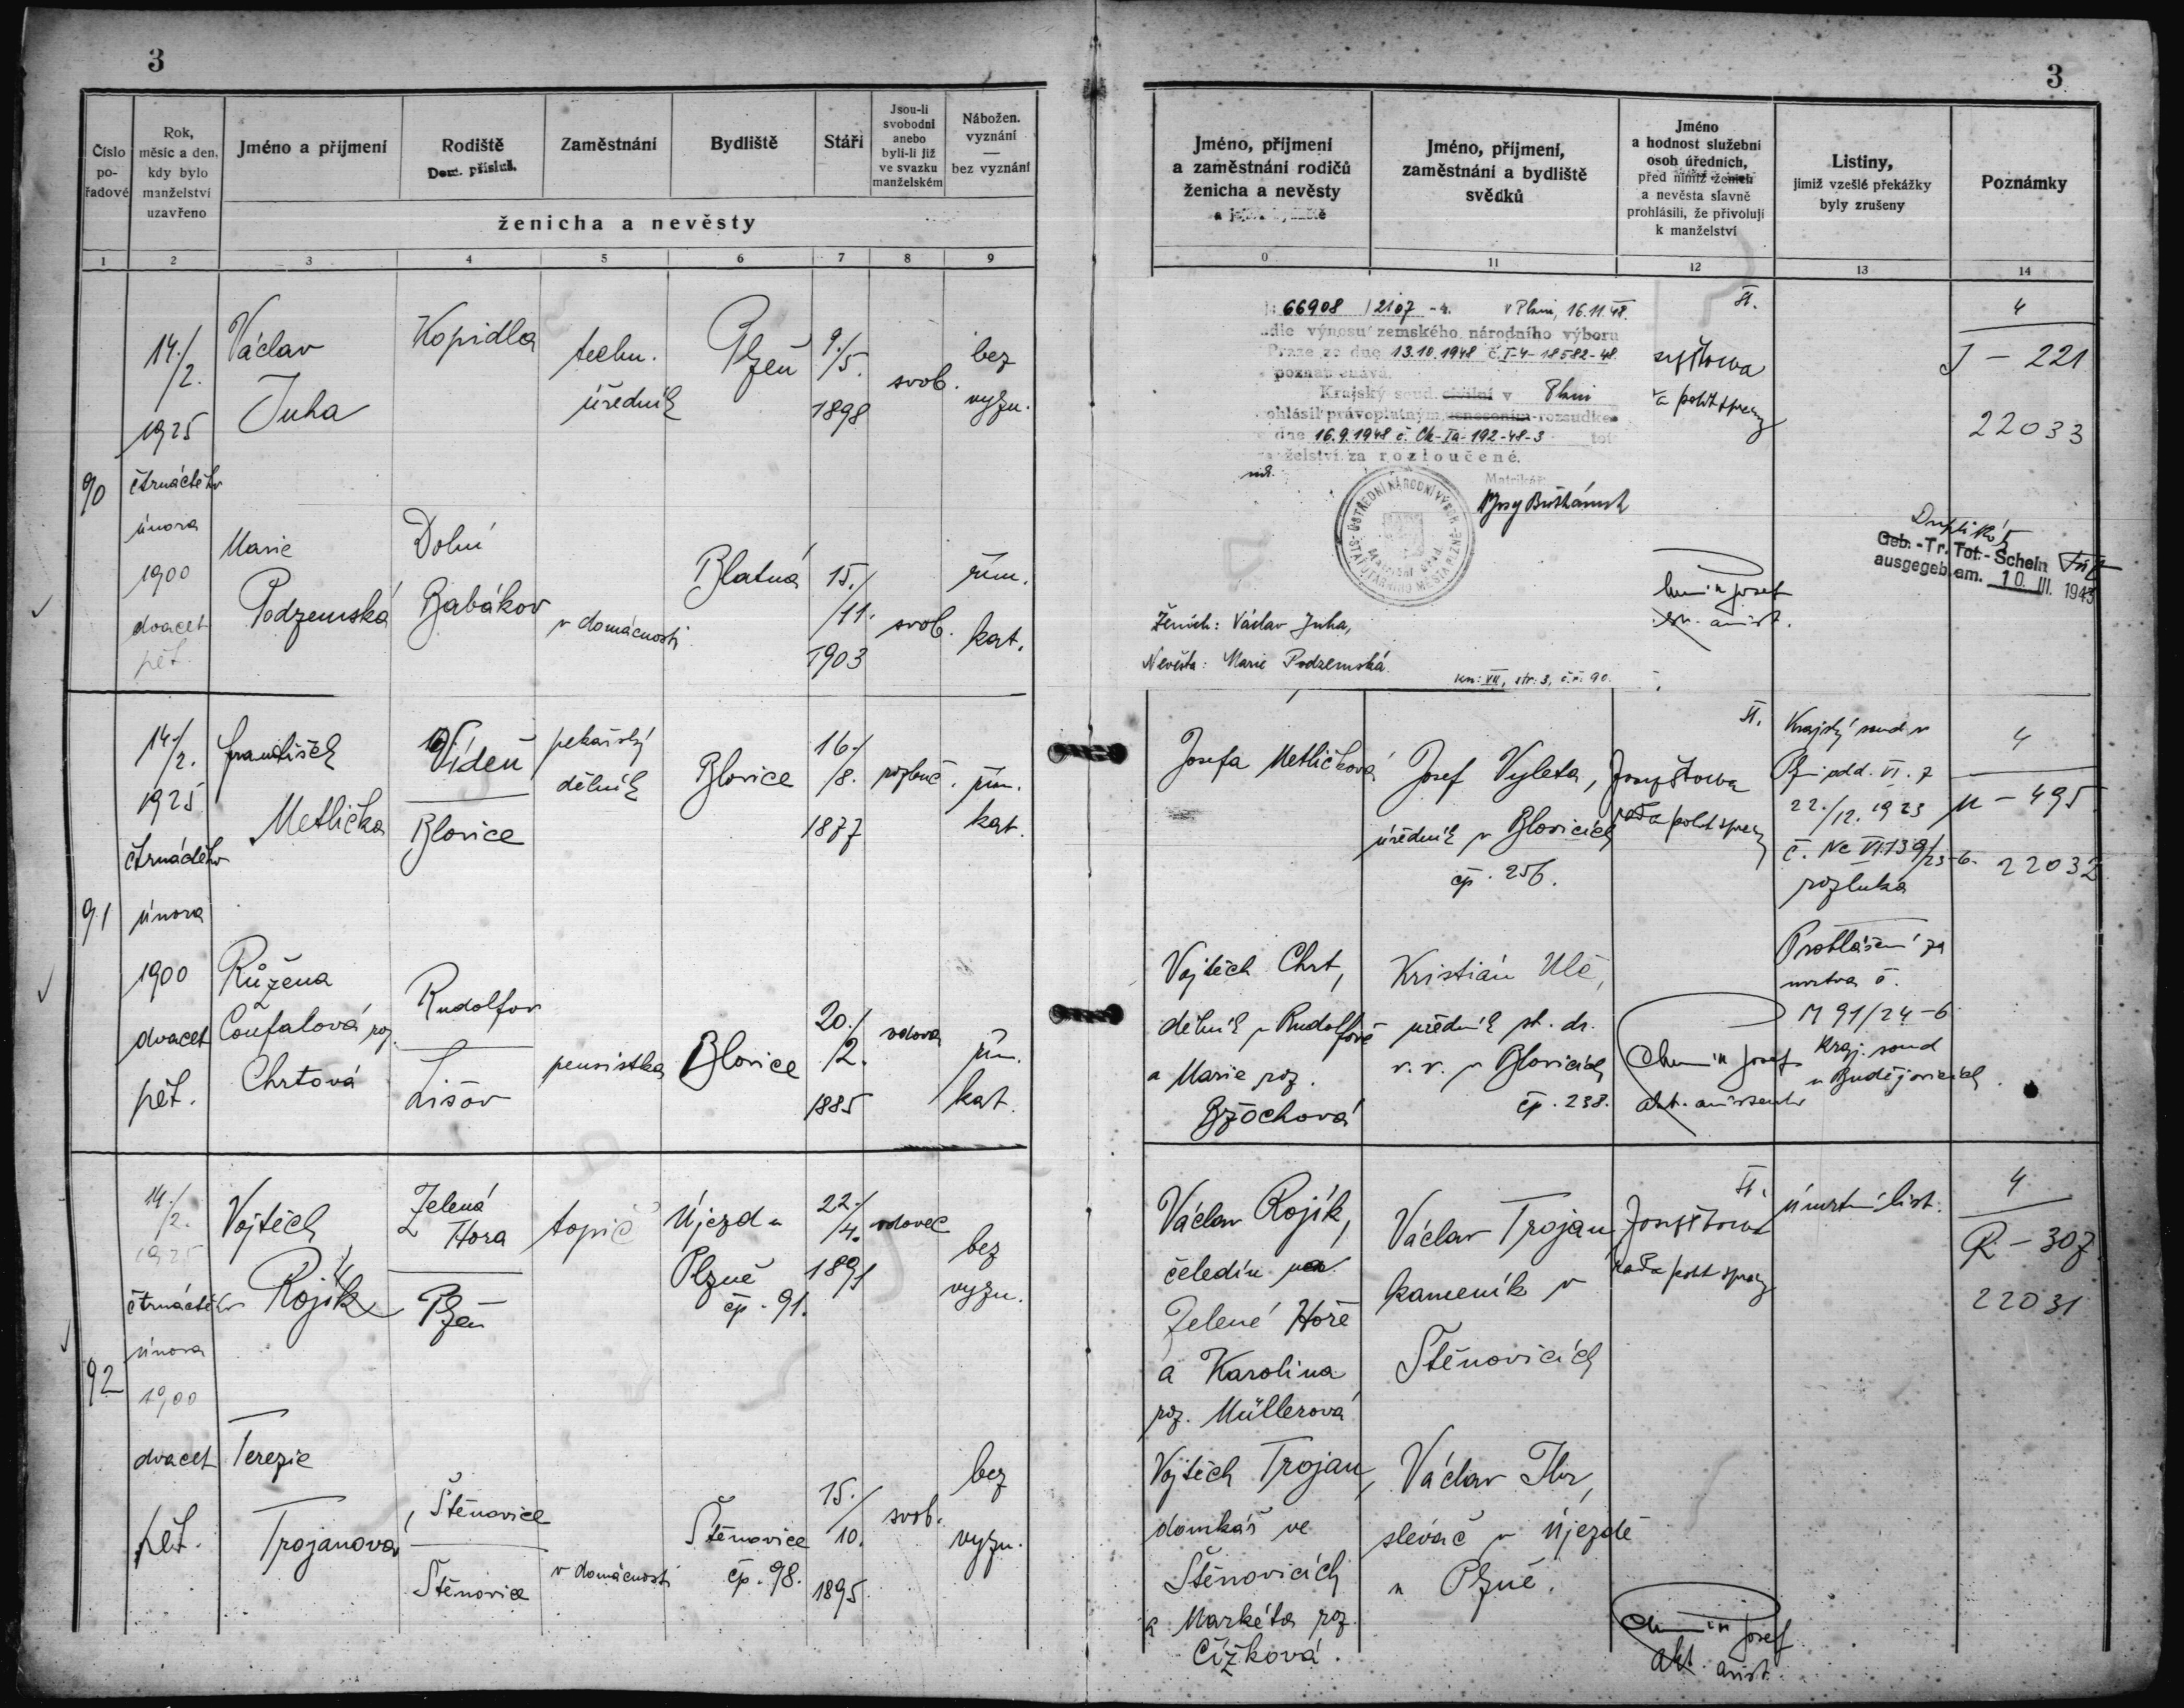 3
Číslo po-řadové
Rok, měsíc a den, kdy bylo manželství uzavřeno
Jméno a příjmení
Rodiště
Dom. přísluš.
Zaměstnání
Bydliště
Stáří
Jsou-li svobodni anebo byli-li již ve svazku manželském
Nábožen. vyznání — bez vyznání
ženicha a nevěsty
1 2 3 4 5 6 7 8 9
90
14./2.
1925
čtrnáctého
února
1900
dvacet
pět.
Václav
Juha
Kopidla
techn.
úředník
Plzeň
9./5.
1898
svob.
bez
vyzn.
Marie
Podzemská
Dolní
Babákov
v domácnosti
Blatná
15./11.
1903
svob.
řím.
kat.
91
14./2.
1925
čtrnáctého
února
1900
dvacet
pět.
František
Metlička
Vídeň
Blovice
pekařský
dělník
Blovice
16./8.
1877
rozluč.
řím.
kat.
Růžena
Coufalová roz.
Chrtová
Rudolfov
Lišov
pensistka
Blovice
20./2.
1885
vdova
řím.
kat.
92
14./2.
1925
čtrnáctého
února
1900
dvacet
pět.
Vojtěch
Rojík
Zelená
Hora
Plzeň
topič
Újezd u
Plzně
čp. 91.
22./4.
1891
vdovec
bez
vyzn.
Terezie
Trojanová
Štěnovice
Štěnovice
v domácnosti
Štěnovice
čp. 98.
15./10.
1895.
svob.
bez
vyzn.
3
Jméno, příjmení a zaměstnání rodičů ženicha a nevěsty
Jméno, příjmení, zaměstnání a bydliště svědků
Jméno a hodnost služební osob úředních, před nimiž ženich a nevěsta slavně prohlásili, že přivolují k manželství
Listiny, jimiž vzešlé překážky byly zrušeny
Poznámky
0 11 12 13 14
66908 / 2107 -4. v Plzni, 16.11.48.
dle výnosu zemského národního výboru
Praze ze dne 13.10.1948 č. I-4-18582-48.
poznamenává.
Krajský soud civilní v Plzni
ohlásil právoplatným usnesením-rozsudkem
dne 16.9.1948 č. Ck-Ia-192-48-3 tot
manželství za rozloučené.
Matrikář:
ÚSTŘEDNÍ NÁRODNÍ VÝBOR STATUTÁRNÍHO MĚSTA PLZNĚ
Matriční úřad
Ženich: Václav Juha,
Nevěsta: Marie Podzemská
kn: VII, str. 3, č.ř. 90.
4
J - 221
22033
Duplikát
Geb.-Tr.Tot.-Schein
ausgegeb. am. 10. III. 1943
Josefa Metličková
Josef Vyleta,
úředník v Blovicích
čp. 256.
Krajský soud v
Plzni odd. VI. 7
22./12. 1923
č. Nc VI 139/23-6.
rozluka
4
M - 495
22032
Vojtěch Chrt,
dělník v Rudolfově
a Marie roz.
Bzochová
Kristián Ulč,
úředník st. dr.
v.v. v Blovicích
čp. 238.
Josef
Prohlášení za
mrtva č.
M 91/24-6
Kraj. soud
v Budějovicích
Václav Rojík,
čeledín na
Zelené Hoře
a Karolina
roz. Müllerová
Václav Trojan
kameník v
Štěnovicích
Úmrtní list.
4
R - 307
22031
Vojtěch Trojan,
domkář ve
Štěnovicích
a Markéta roz.
Čížková.
Václav
slévač v Újezdě
u Plzně.
Josef